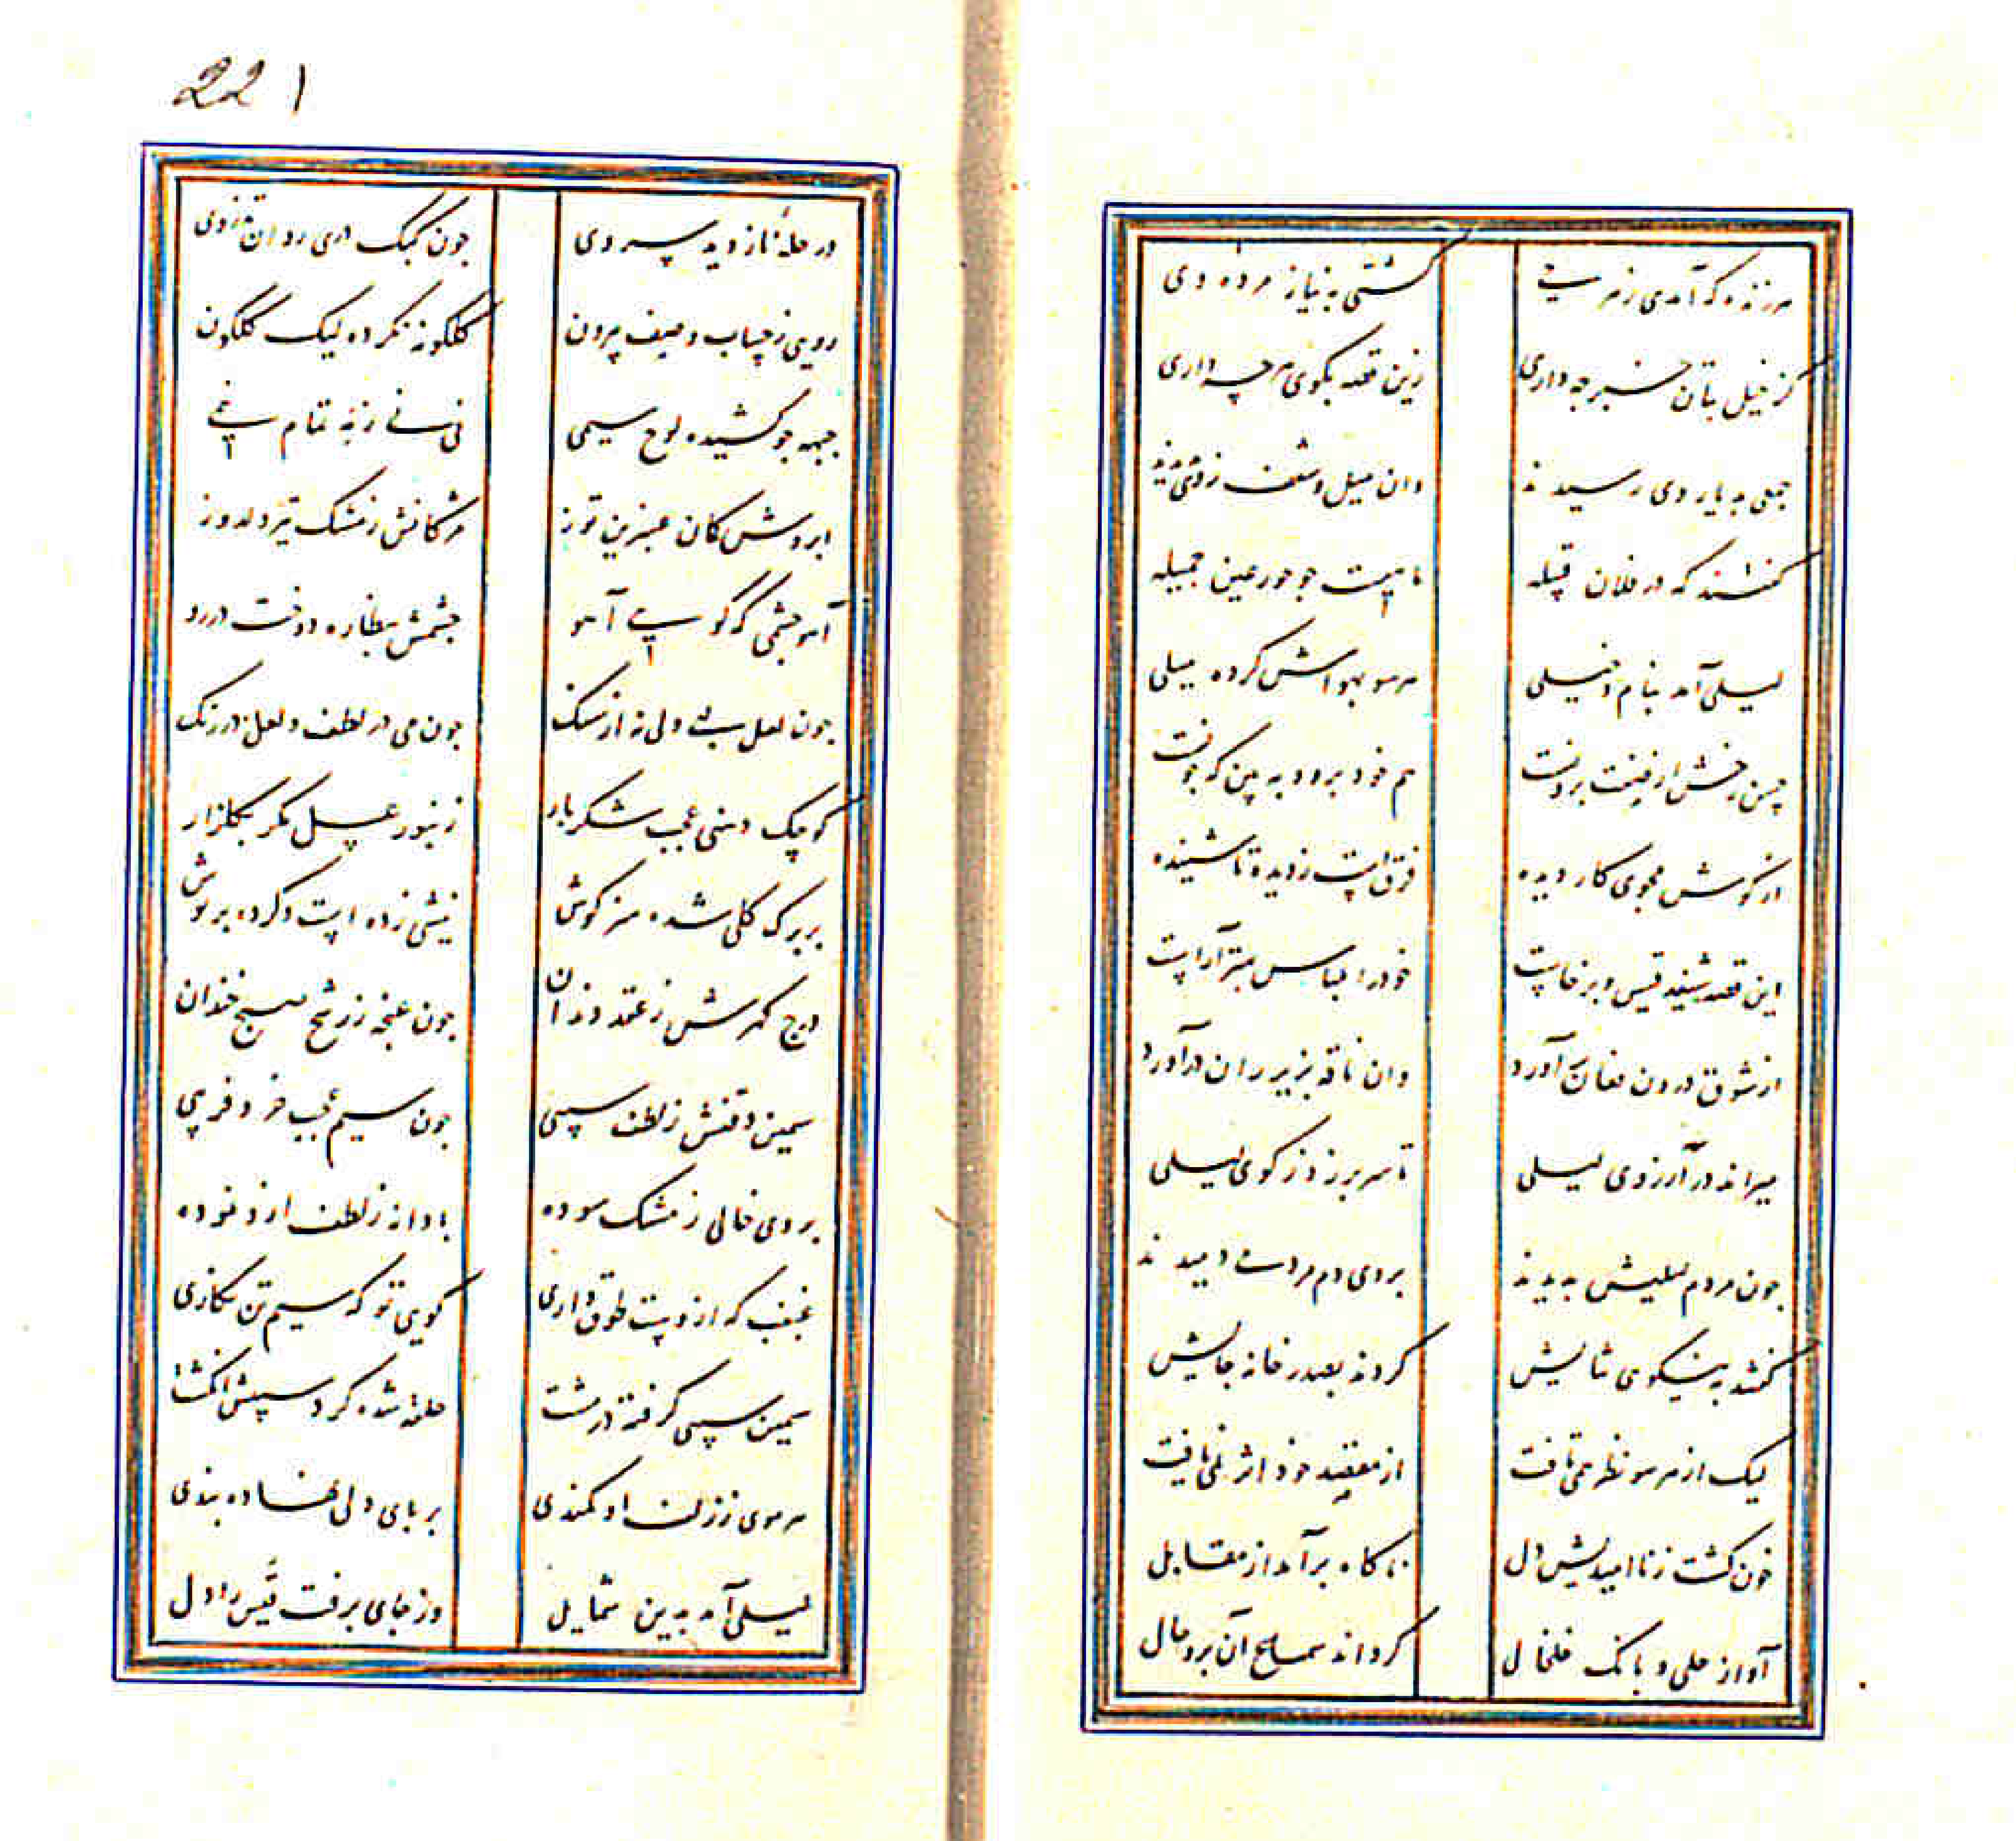 221
هر زنده که آمدی ز هر حی
گشتی به نیاز مرده وی
کز خیل بتان خبر چه داری
زین قصه بگوی هر چه داری
جمعی به دیار وی رسیدند
وان میل و شعف ز وی بدیدند
گفتند که در فلان قبیله
ماهیست چو حور عین جمیله
لیلی آمد بنام و خیلی
هر سو بهواش کرده میلی
حسن رخش از صفت برونست
هم خود برو و ببین که چونست
از گوش مجوی کار دیده
فرق است ز دیده تا شنیده
این قصه شنید قیس و برخاست
خود را بلباس بهتر آراست
از شوق درون فغان برآورد
وان ناقه بزیر ران درآورد
میراند در آرزوی لیلی
تا سر برزد ز کوی لیلی
چون مردم لیلیش بدیدند
بر وی دم مردمی دمیدند
گفتند به نیکوی ثنایش
کردند بصدر خانه جایش
لیک از هر سو نظر همی تافت
از مقصد خود اثر نمی یافت
خون گشت ز نا امیدیش دل
ناگاه برآمد از مقابل
آواز حلی و بانگ خلخال
گرداند سماع آن برو حال
در حله ناز دید سروی
چون کبک دری روان تذروی
رویی ز حساب وصف بیرون
گلگونه نکرده لیک گلگون
جبهه چو کشیده لوح سیمی
نی نی ز مه تمام نیمی
ابروش کمان عنبرین توز
مژگانش ز مشک تیر دلدوز
آهو چشمی که گویی آهو
چشمش بنظاره دوخت در رو
چون لعل لبی ولی نه از سنگ
چون می در لطف و لعل در رنگ
کوچک دهنی عجب شکربار
زنبور عسل مگر بگلزار
بر برگ گلی شده سزگوش
نیشی زده است و کرده پر نوش
درج گهرش ز عقد دندان
چون غنچه ز رشح صبح خندان
سیمین ذقنش ز لطف سیبی
چون سیم عجب خرد فریبی
بر وی خالی ز مشک سوده
یا دانه ز لطف ازو نموده
غبغب که ازوست طوق واری
گویی تو که سیم تن نگاری
سیمین سیبی گرفته در مشت
حلقه شده گرد سیبش انگشت
هر موی ز زلف او کمندی
بر پای دلی نهاده بندی
لیلی آمد بدین شمایل
وز جای برفت قیس را دل